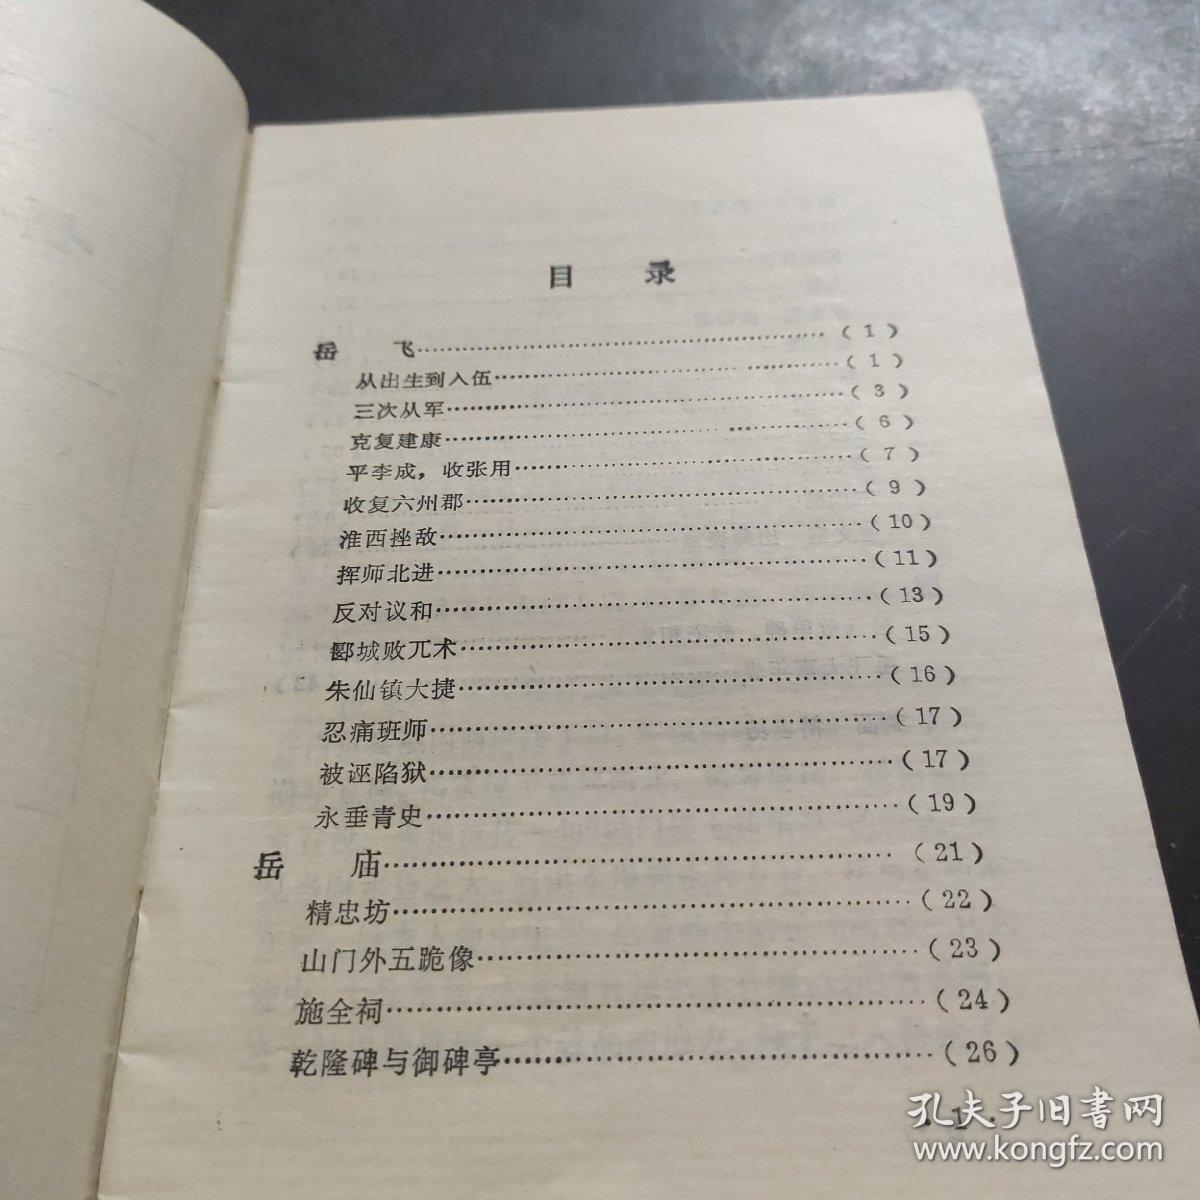 目　录
岳　飞……………………………………………（1）
从出生到入伍……………………………………（1）
三次从军…………………………………………（3）
克复建康…………………………………………（6）
平李成，收张用…………………………………（7）
收复六州郡………………………………………（9）
淮西挫敌…………………………………………（10）
挥师北进…………………………………………（11）
反对议和…………………………………………（13）
郾城败兀术………………………………………（15）
朱仙镇大捷………………………………………（16）
忍痛班师…………………………………………（17）
被诬陷狱…………………………………………（17）
永垂青史…………………………………………（19）
岳　庙……………………………………………（21）
精忠坊……………………………………………（22）
山门外五跪像……………………………………（23）
施全祠……………………………………………（24）
乾隆碑与御碑亭…………………………………（26）
· 1 ·
孔夫子旧书网
www.kongfz.com